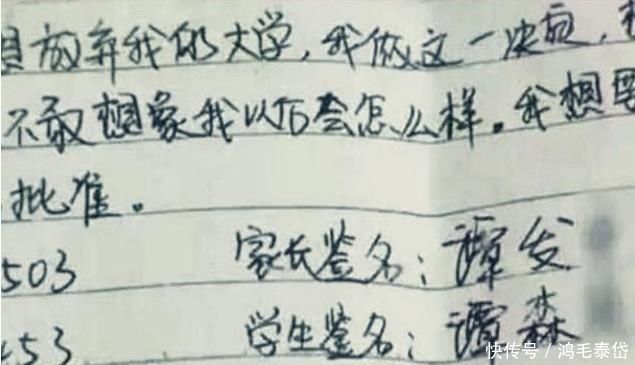 放弃我的大学,我做这一决定,
不敢想象我以后会怎么样。我想要
批准。
503 家长签名:谭发
53 学生签名:谭森
快传号/鸿毛泰岱